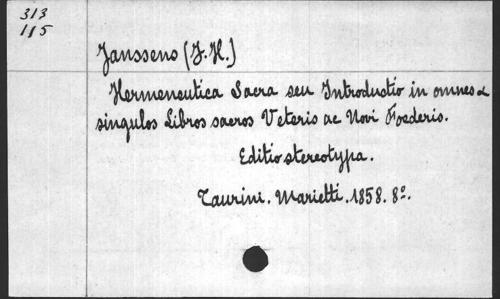 313
115
Janssens (J. H.)
Hermeneutica Sacra seu Introductio in omnes &
singulos Libros sacros Veteris ac Novi Foederis.
Editio stereotypa.
Taurini. Marietti. 1858. 8º.